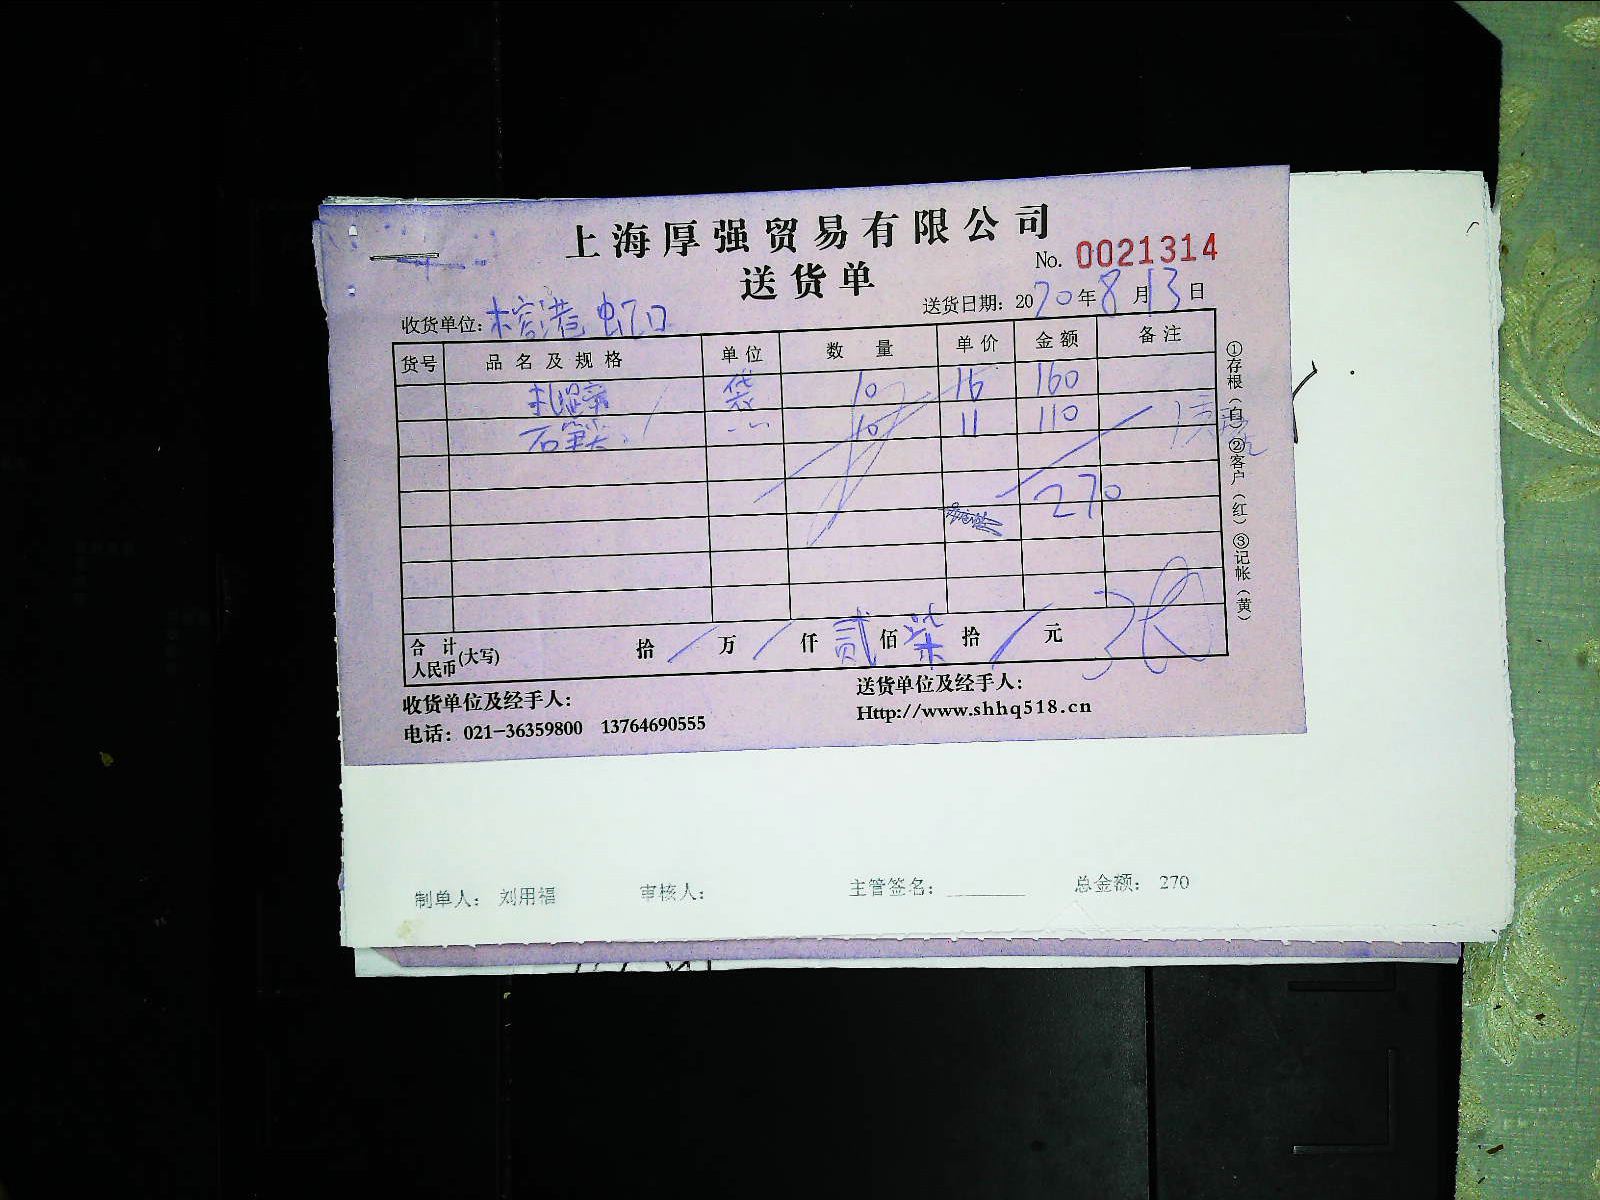 上海厚强贸易有限公司
No. 0021314
送货单
送货日期: 2020年8月13日
收货单位: 榕港 虹口
货号 品名及规格 单位 数量 单价 金额 备注
袋 10 16 160
石笔尖 〃 10 11 110
270
合计人民币(大写) 拾 / 万 / 仟 贰 佰 柒 拾 / 元
①存根(白)②客户(红)③记帐(黄)
收货单位及经手人:
送货单位及经手人:
电话: 021-36359800 13764690555
Http://www.shhq518.cn
制单人: 刘用福 审核人: 主管签名: 总金额: 270